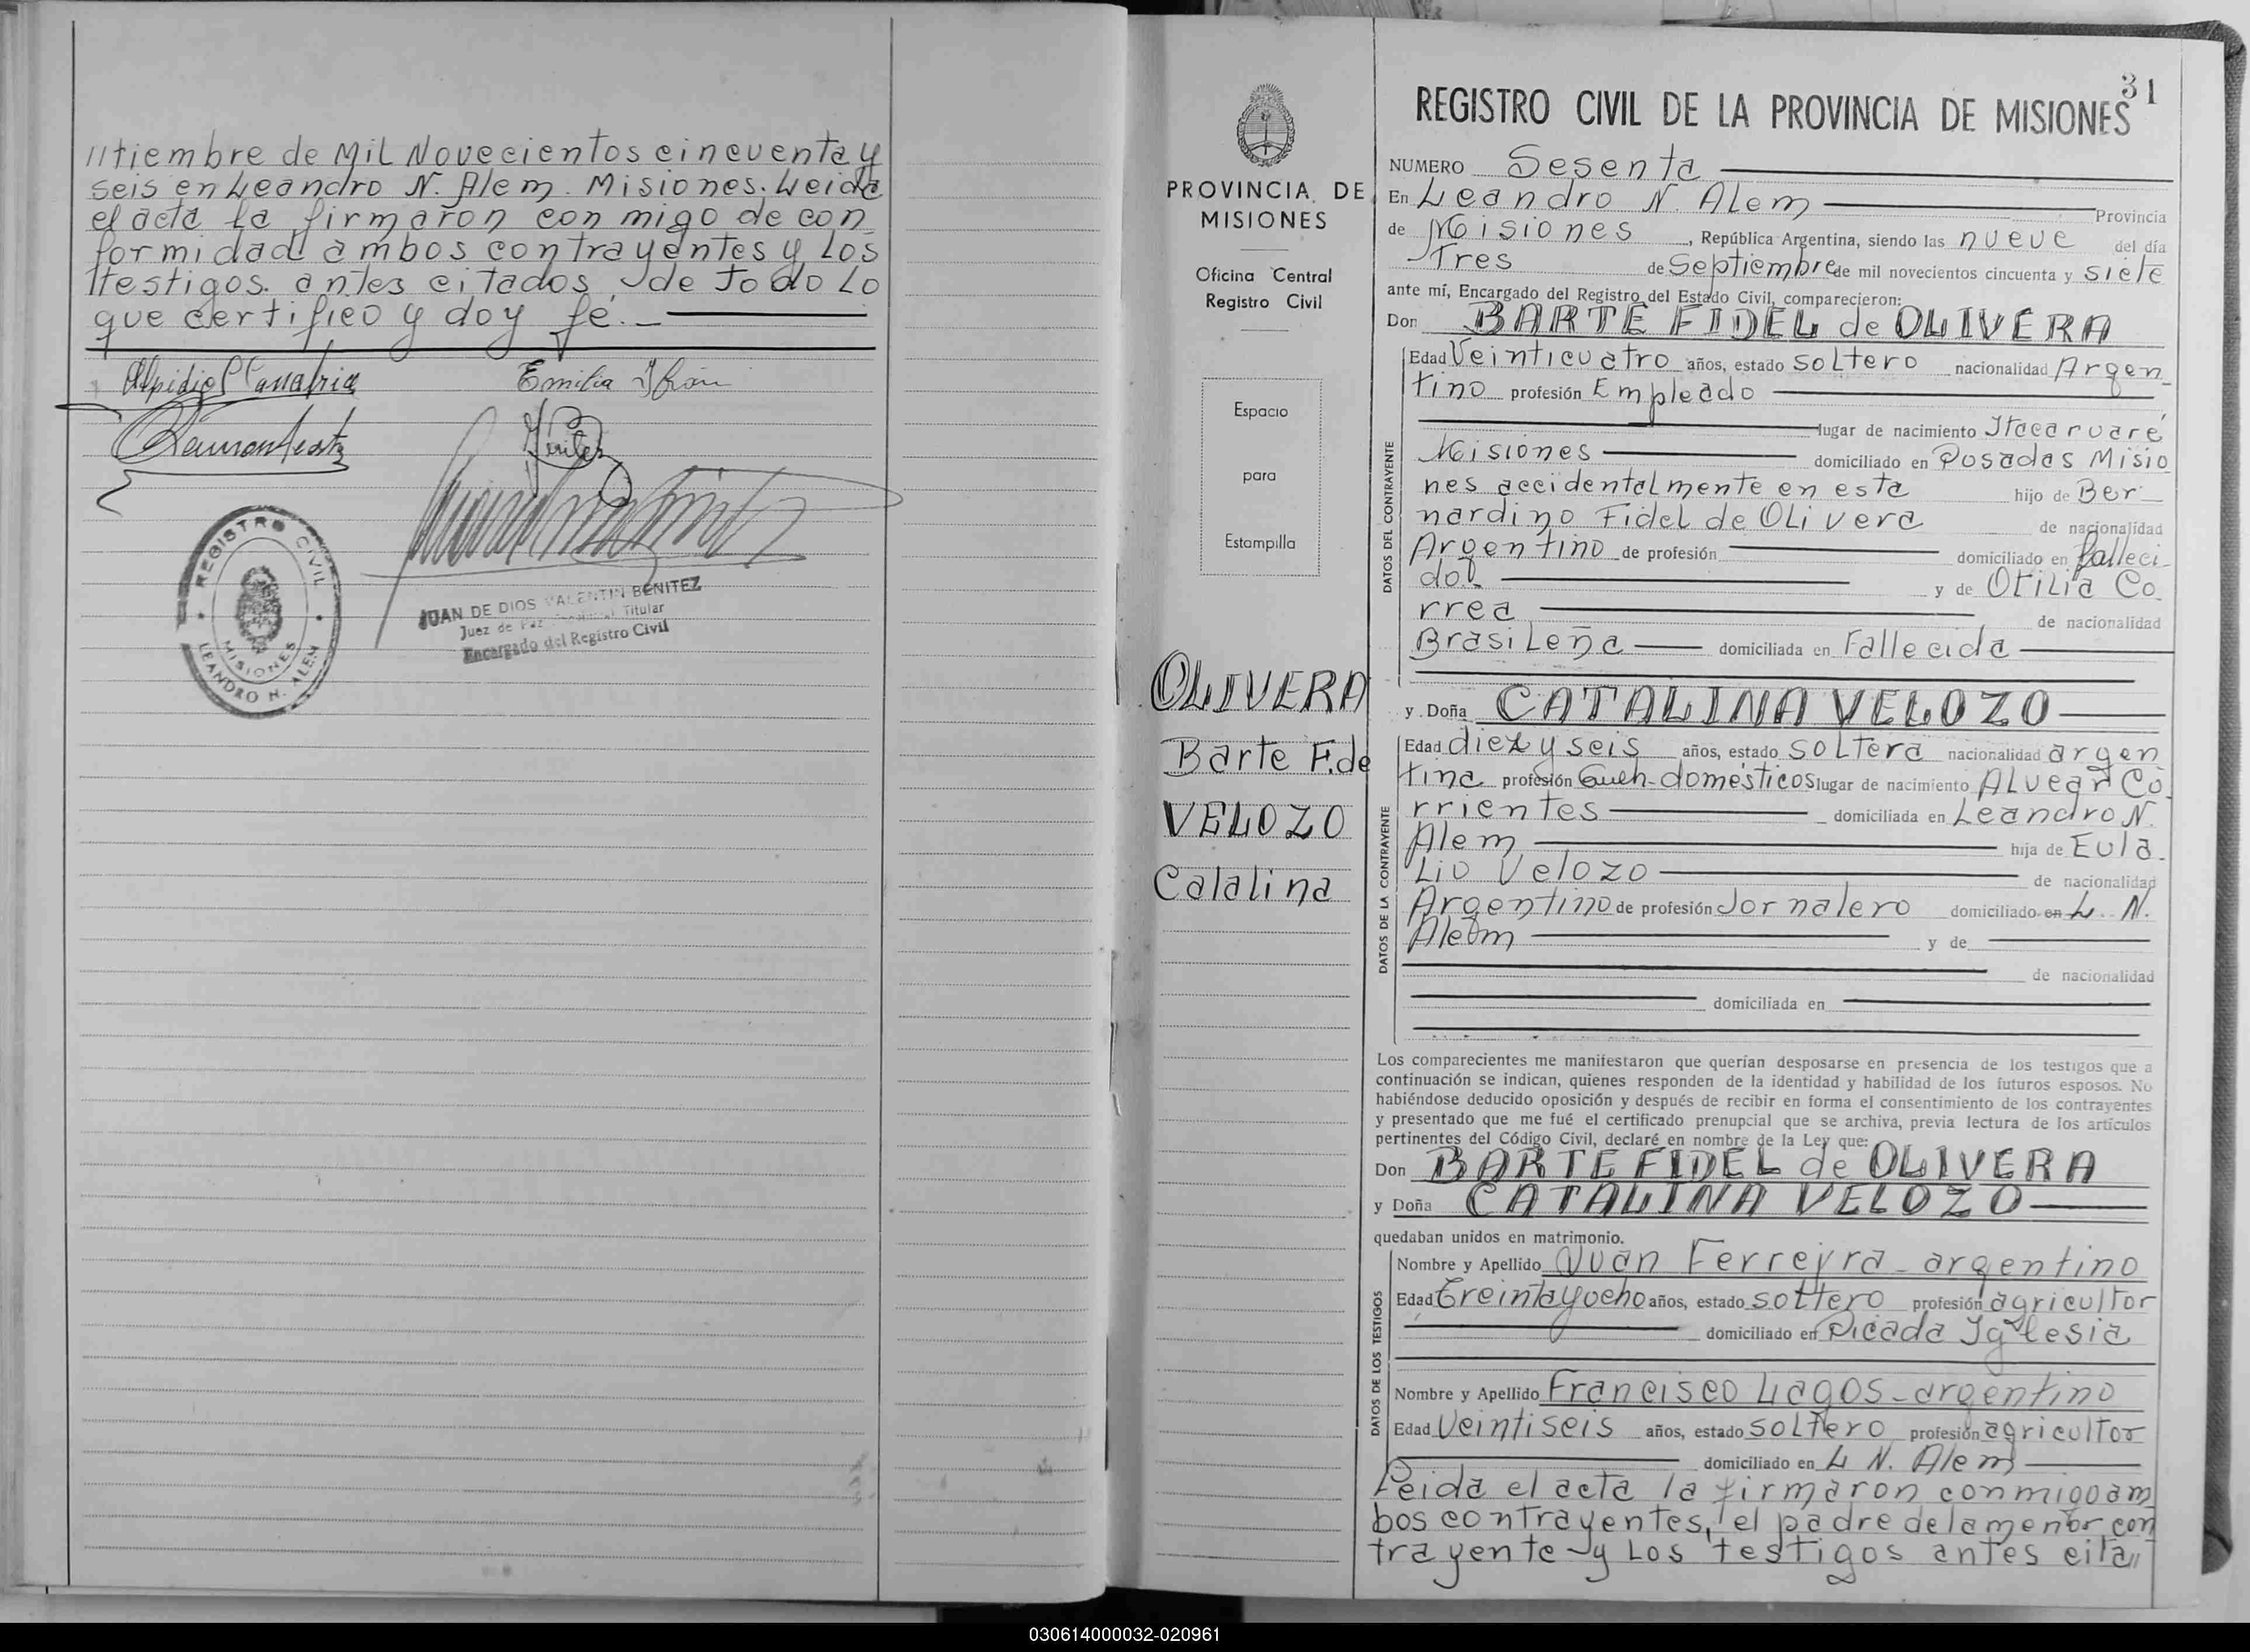 //tiembre de Mil Novecientos cincuenta y
seis en Leandro N. Alem. Misiones. Leida
el acta la firmaron con migo de con_
formidad ambos contrayentes y Los
ttestigos. antes citados de todo Lo
que certifico y doy fé._
Emilia
REGISTRO CIVIL
MISIONES
LEANDRO N. ALEM
JUAN DE DIOS VALENTIN BENITEZ
Juez de Paz Titular
Encargado del Registro Civil
PROVINCIA DE
MISIONES
Oficina Central
Registro Civil
Espacio
para
Estampilla
OLIVERA
Barte F. de
VELOZO
Catalina
31
REGISTRO CIVIL DE LA PROVINCIA DE MISIONES
NUMERO Sesenta
En Leandro N. Alem Provincia
de Misiones, República Argentina, siendo las nueve del día
Tres de Septiembre de mil novecientos cincuenta y siete
ante mí, Encargado del Registro del Estado Civil, comparecieron:
Don BARTE FIDEL de OLIVERA
DATOS DEL CONTRAYENTE
Edad Veinticuatro años, estado soltero nacionalidad Argen_
tino profesión Empleado
lugar de nacimiento Itacaruaré
Misiones domiciliado en Posadas Misio
nes accidentalmente en esta hijo de Ber_
nardino Fidel de Olivera de nacionalidad
Argentino de profesión domiciliado en falleci_
do y de Otilia Co_
rrea de nacionalidad
Brasileña domiciliada en Fallecida
y Doña CATALINA VELOZO
DATOS DE LA CONTRAYENTE
Edad diez y seis años, estado soltera nacionalidad argen
tina profesión Queh-domésticos lugar de nacimiento Alvear Co_
rrientes domiciliada en Leandro N.
Alem hija de Eula_
Lio Velozo de nacionalidad
Argentino de profesión Jornalero domiciliado en L. N.
Alem y de
de nacionalidad
domiciliada en
Los comparecientes me manifestaron que querían desposarse en presencia de los testigos que a
continuación se indican, quienes responden de la identidad y habilidad de los futuros esposos. No
habiéndose deducido oposición y después de recibir en forma el consentimiento de los contrayentes
y presentado que me fué el certificado prenupcial que se archiva, previa lectura de los artículos
pertinentes del Código Civil, declaré en nombre de la Ley que:
Don BARTE FIDEL de OLIVERA
y Doña CATALINA VELOZO
quedaban unidos en matrimonio.
DATOS DE LOS TESTIGOS
Nombre y Apellido Juan Ferreyra - argentino
Edad Treintayocho años, estado soltero profesión agricultor
domiciliado en Picada Iglesia
Nombre y Apellido Francisco Lagos - argentino
Edad Veintiseis años, estado soltero profesión agricultor
domiciliado en L N. Alem
Leida el acta la firmaron conmigo am_
bos contrayentes, el padre de la menor con
trayente y Los testigos antes cita//
030614000032-020961